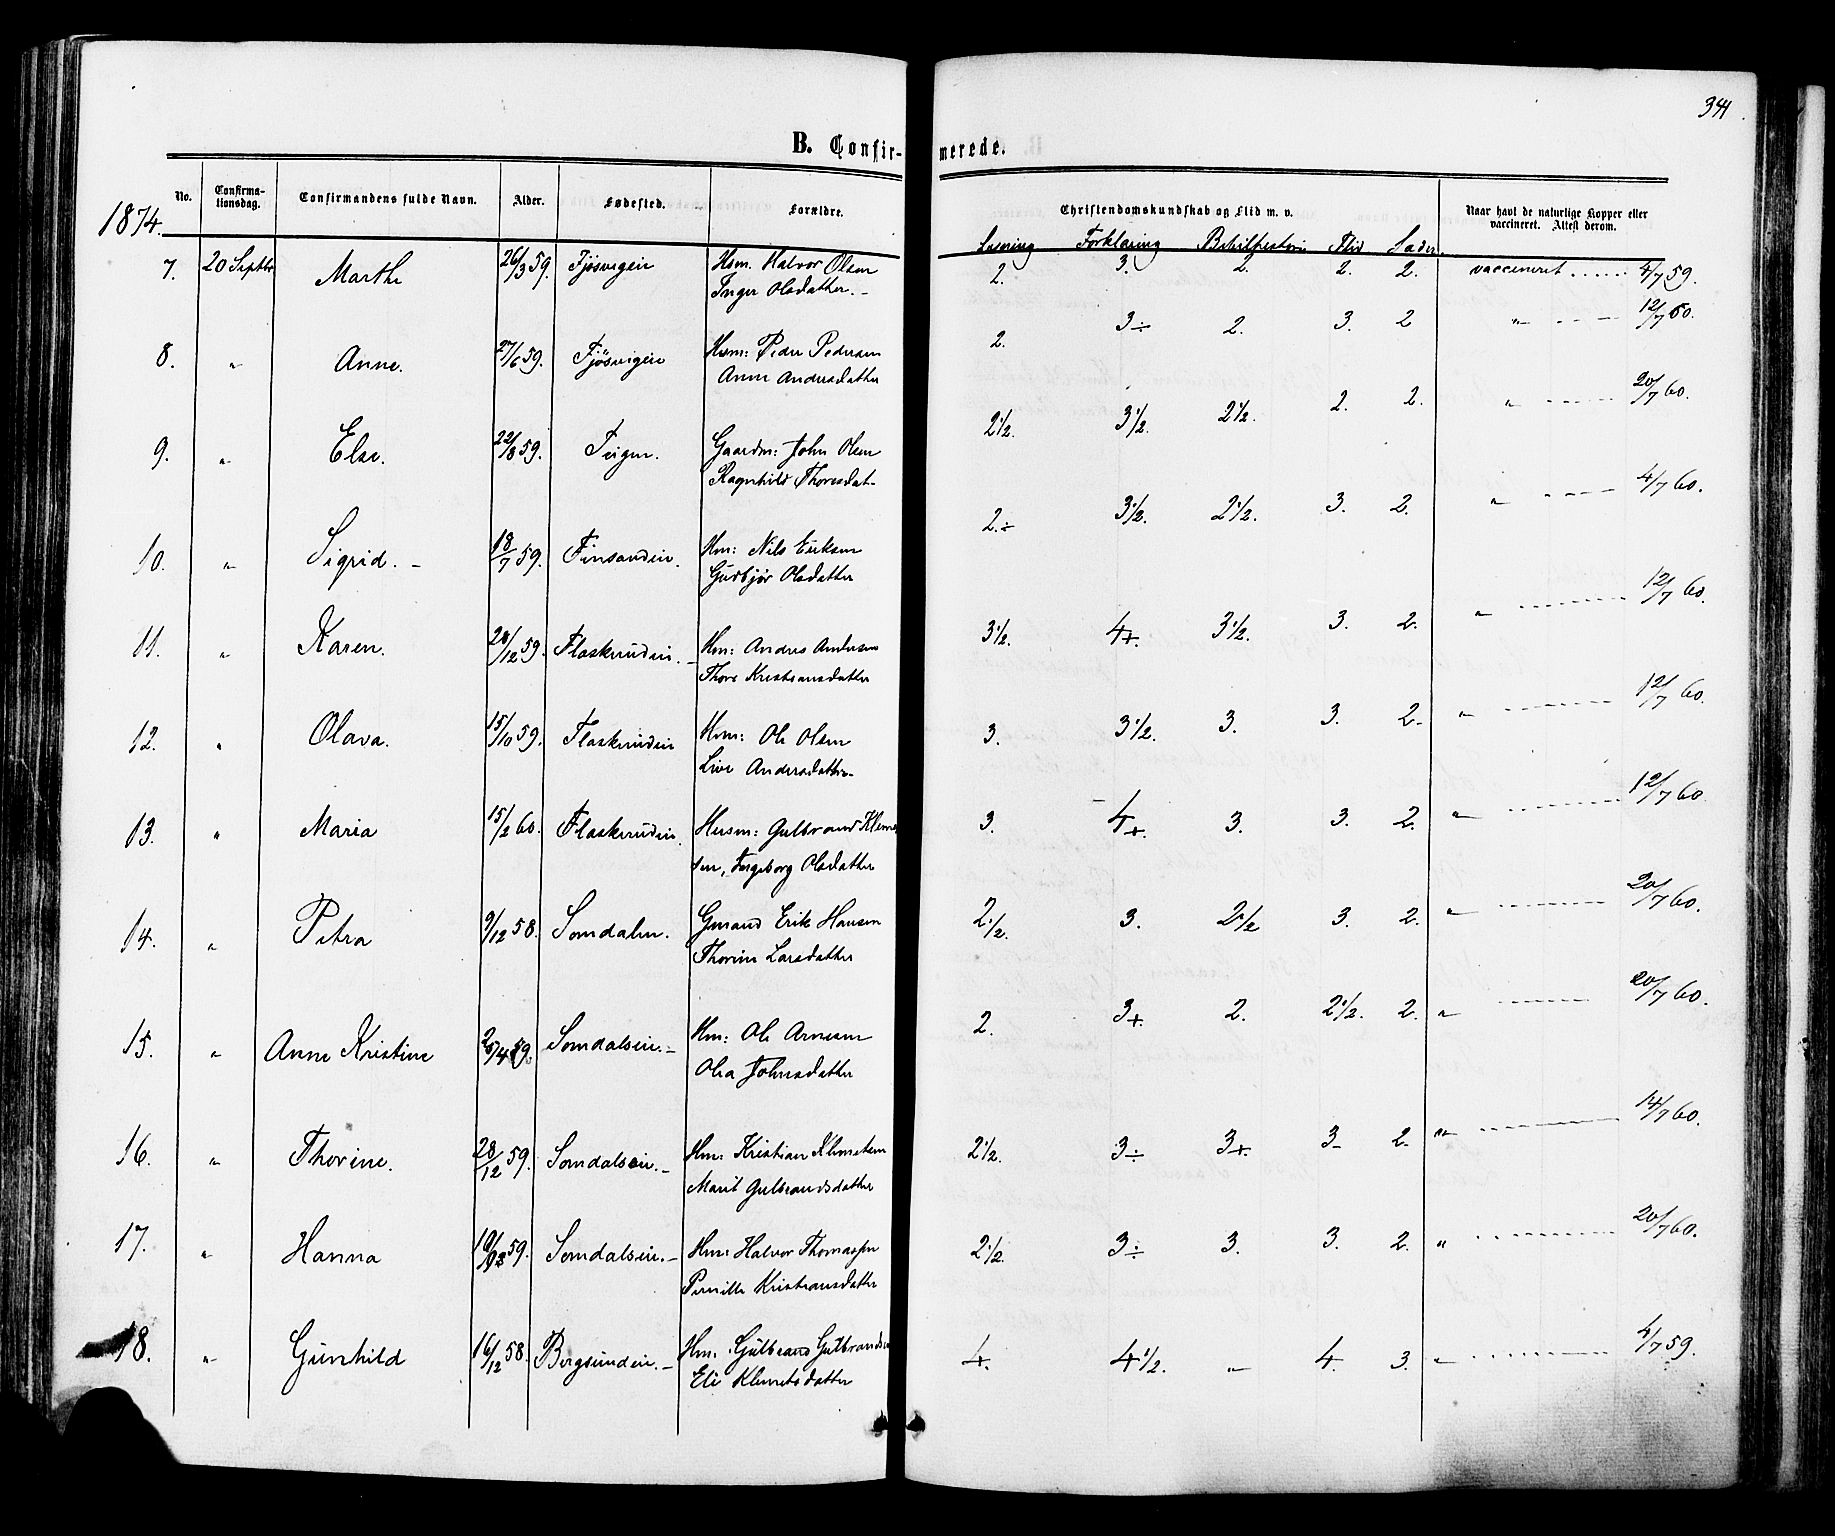 341.
B. Confirmerede.
No. Confirmationsdag. Confirmandens fulde Navn. Alder. Fødested. Forældre. Christendomskundskab og Flid m. v. Naar havt de naturlige Kopper eller vaccineret. Attest derom.
1874. Læsning Forklaring Bibelhistorie Flid Sæder
7. 20 Septbr Marthe 26/3 59. Fjøsvigeie Hsm. Halvor Olsen 2. 3. 2. 2. 2. vaccineret ...... 4/7 59.
Inger Olsdatter. -
8. " Anne. 27/6 59. Fjøsvigeie Hsm: Peder Pedersen 2. 3÷ 2. 3. 2 " - -- - 12/7 60.
Anne Andersdatter
9. " Else. 22/8 59. Gaardm: John Olsen 2 1/2. 3 1/2. 2 1/2. 2. 2. " ----- 20/7 60.
Ragnhild Thoresdat-
10. " Sigrid. - 18/7 59. Finsandeie. Hm: Nils Eriksen 2.÷ 3 1/2. 2 1/2. 3. 2. " ----- 4/7 60.
Gudbjør Olsdatter
11. " Karen. /12 59. Flaskerudeie. - Hm: Andres Andersen 3 1/2. 4+. 3 1/2. 3. 2. " ------- 12/7 60.
Thore Kristiansdatter
12. " Olava. 15/10 59. Flaskerudeie Hsm: Ole Olsen 3. 3 1/2. 3. 3. 2- " ------- 12/7 60.
Live Andersdatter-
13. " Maria 15/2 60. Flaskerudeie. Husm: Gulbrand Klemet 3. 4+. 3. 3. 2. " ------- 12/7 60.
sen, Ingeborg Olsdatter
14. " Petra 9/12 58. Somdalen. Gmand Erik Hansen 2 1/2. 3. 2 1/2 3. 2. " ------- 20/7 60.
Thorine Larsdatter
15. " Anne Kristine /4 59. Somdalseie. - Hm: Ole Arnesen 2. 3+. 2. 2 1/2. 2. " ------- 20/7 60.
Olea Johnsdatter
16. " Thorine. 28/12 59. Somdalseie. - Hm: Kristian Klemetsen 2 1/2. 3÷ 3+. 3- 2. " ------- 14/7 60.
Marit Gulbrandsdatter
17. " Hanna 59. Somdalseie. - Hm: Halvor Thomassen 2 1/2. 3÷ 3. 3. 2. " ------- 20/7 60.
Pernille Kristiansdatter
18. " Gunhild 16/12 58. Bergsundeie. - Hm: Gulbrand Gulbrandsen 4. 4 1/2. " 4. 3. " ------- 4/7 59.
Eli Klemetsdatter